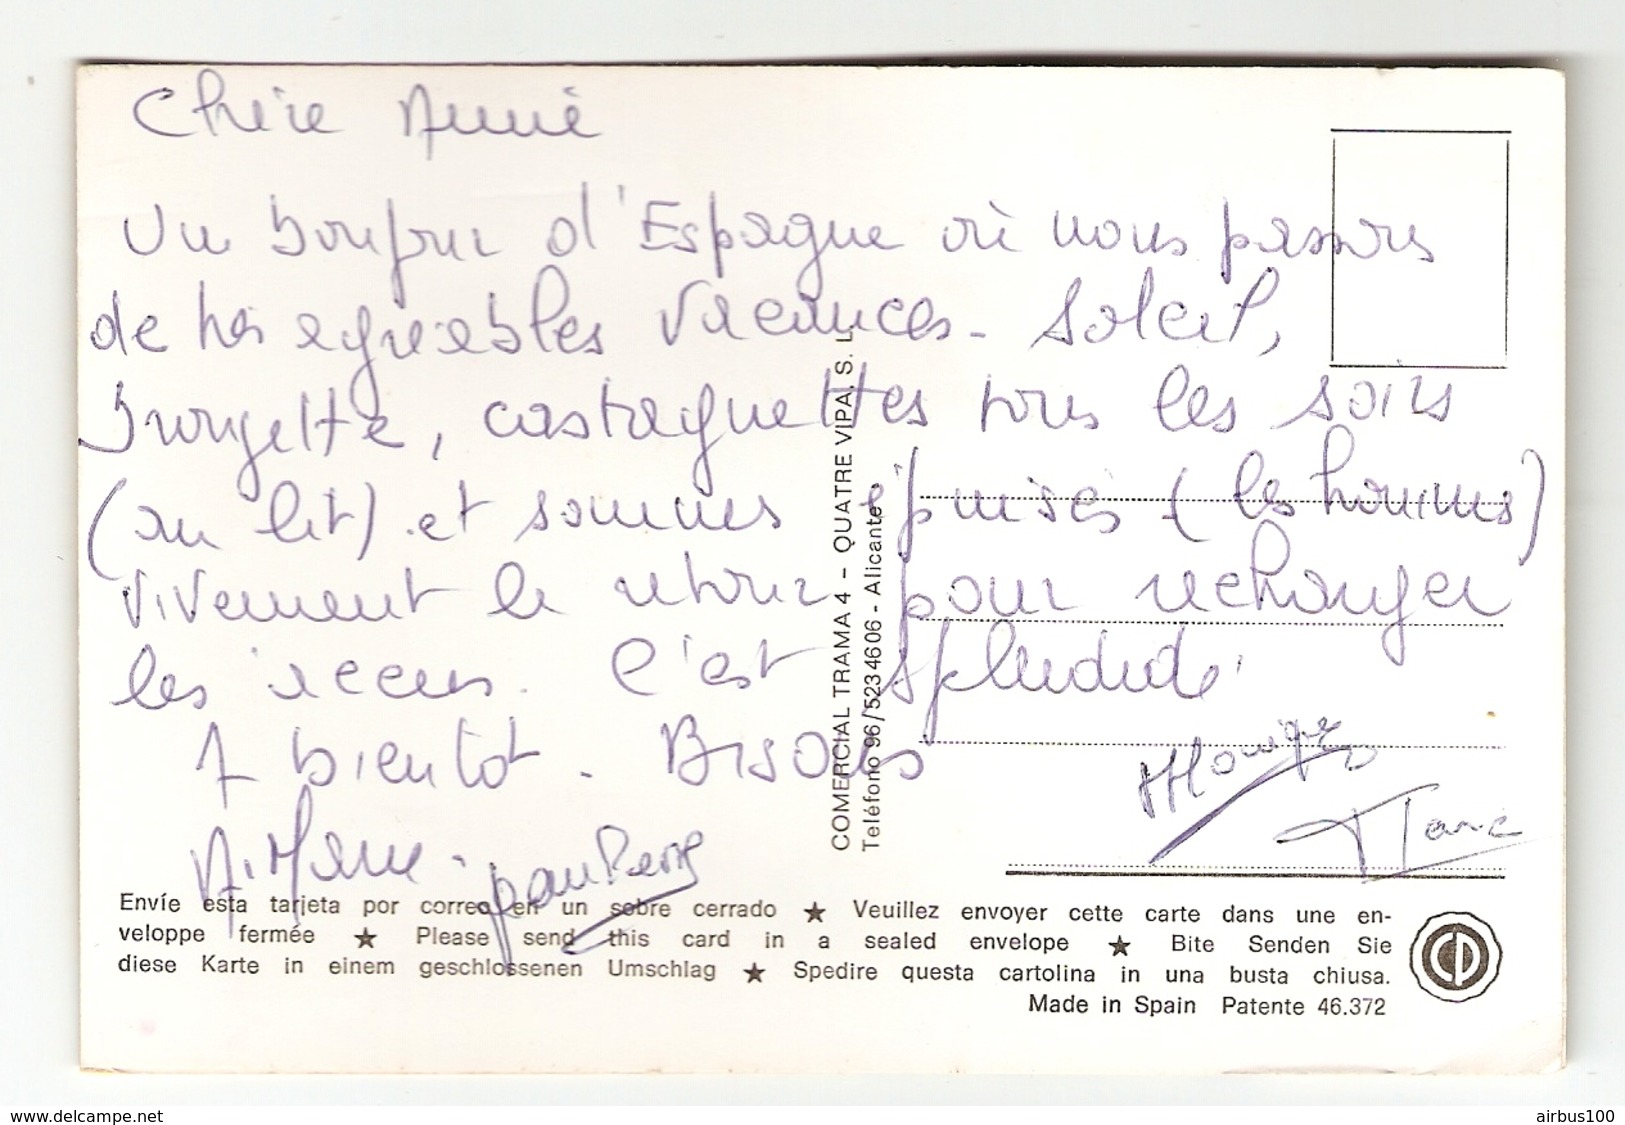 Chère Annie
Un bonjour d'Espagne où nous passons
de très agréables vacances - Soleil,
bronzette, castagnettes tous les soirs
(au lit). et sommes épuisés (les hommes)
vivement le retour pour rechanger
les. C'est splendide.
A bientôt. Bisous
A. Marie - Jean Pierre
Monique
COMERCIAL TRAMA 4 - QUATRE VIPA, S. L.
Teléfono 96/523 46 06 - Alicante
Envíe esta tarjeta por correo en un sobre cerrado ★ Veuillez envoyer cette carte dans une en-
veloppe fermée ★ Please send this card in a sealed envelope ★ Bite Senden Sie
diese Karte in einem geschlossenen Umschlag ★ Spedire questa cartolina in una busta chiusa.
Made in Spain Patente 46.372
CP
www.delcampe.net
airbus100